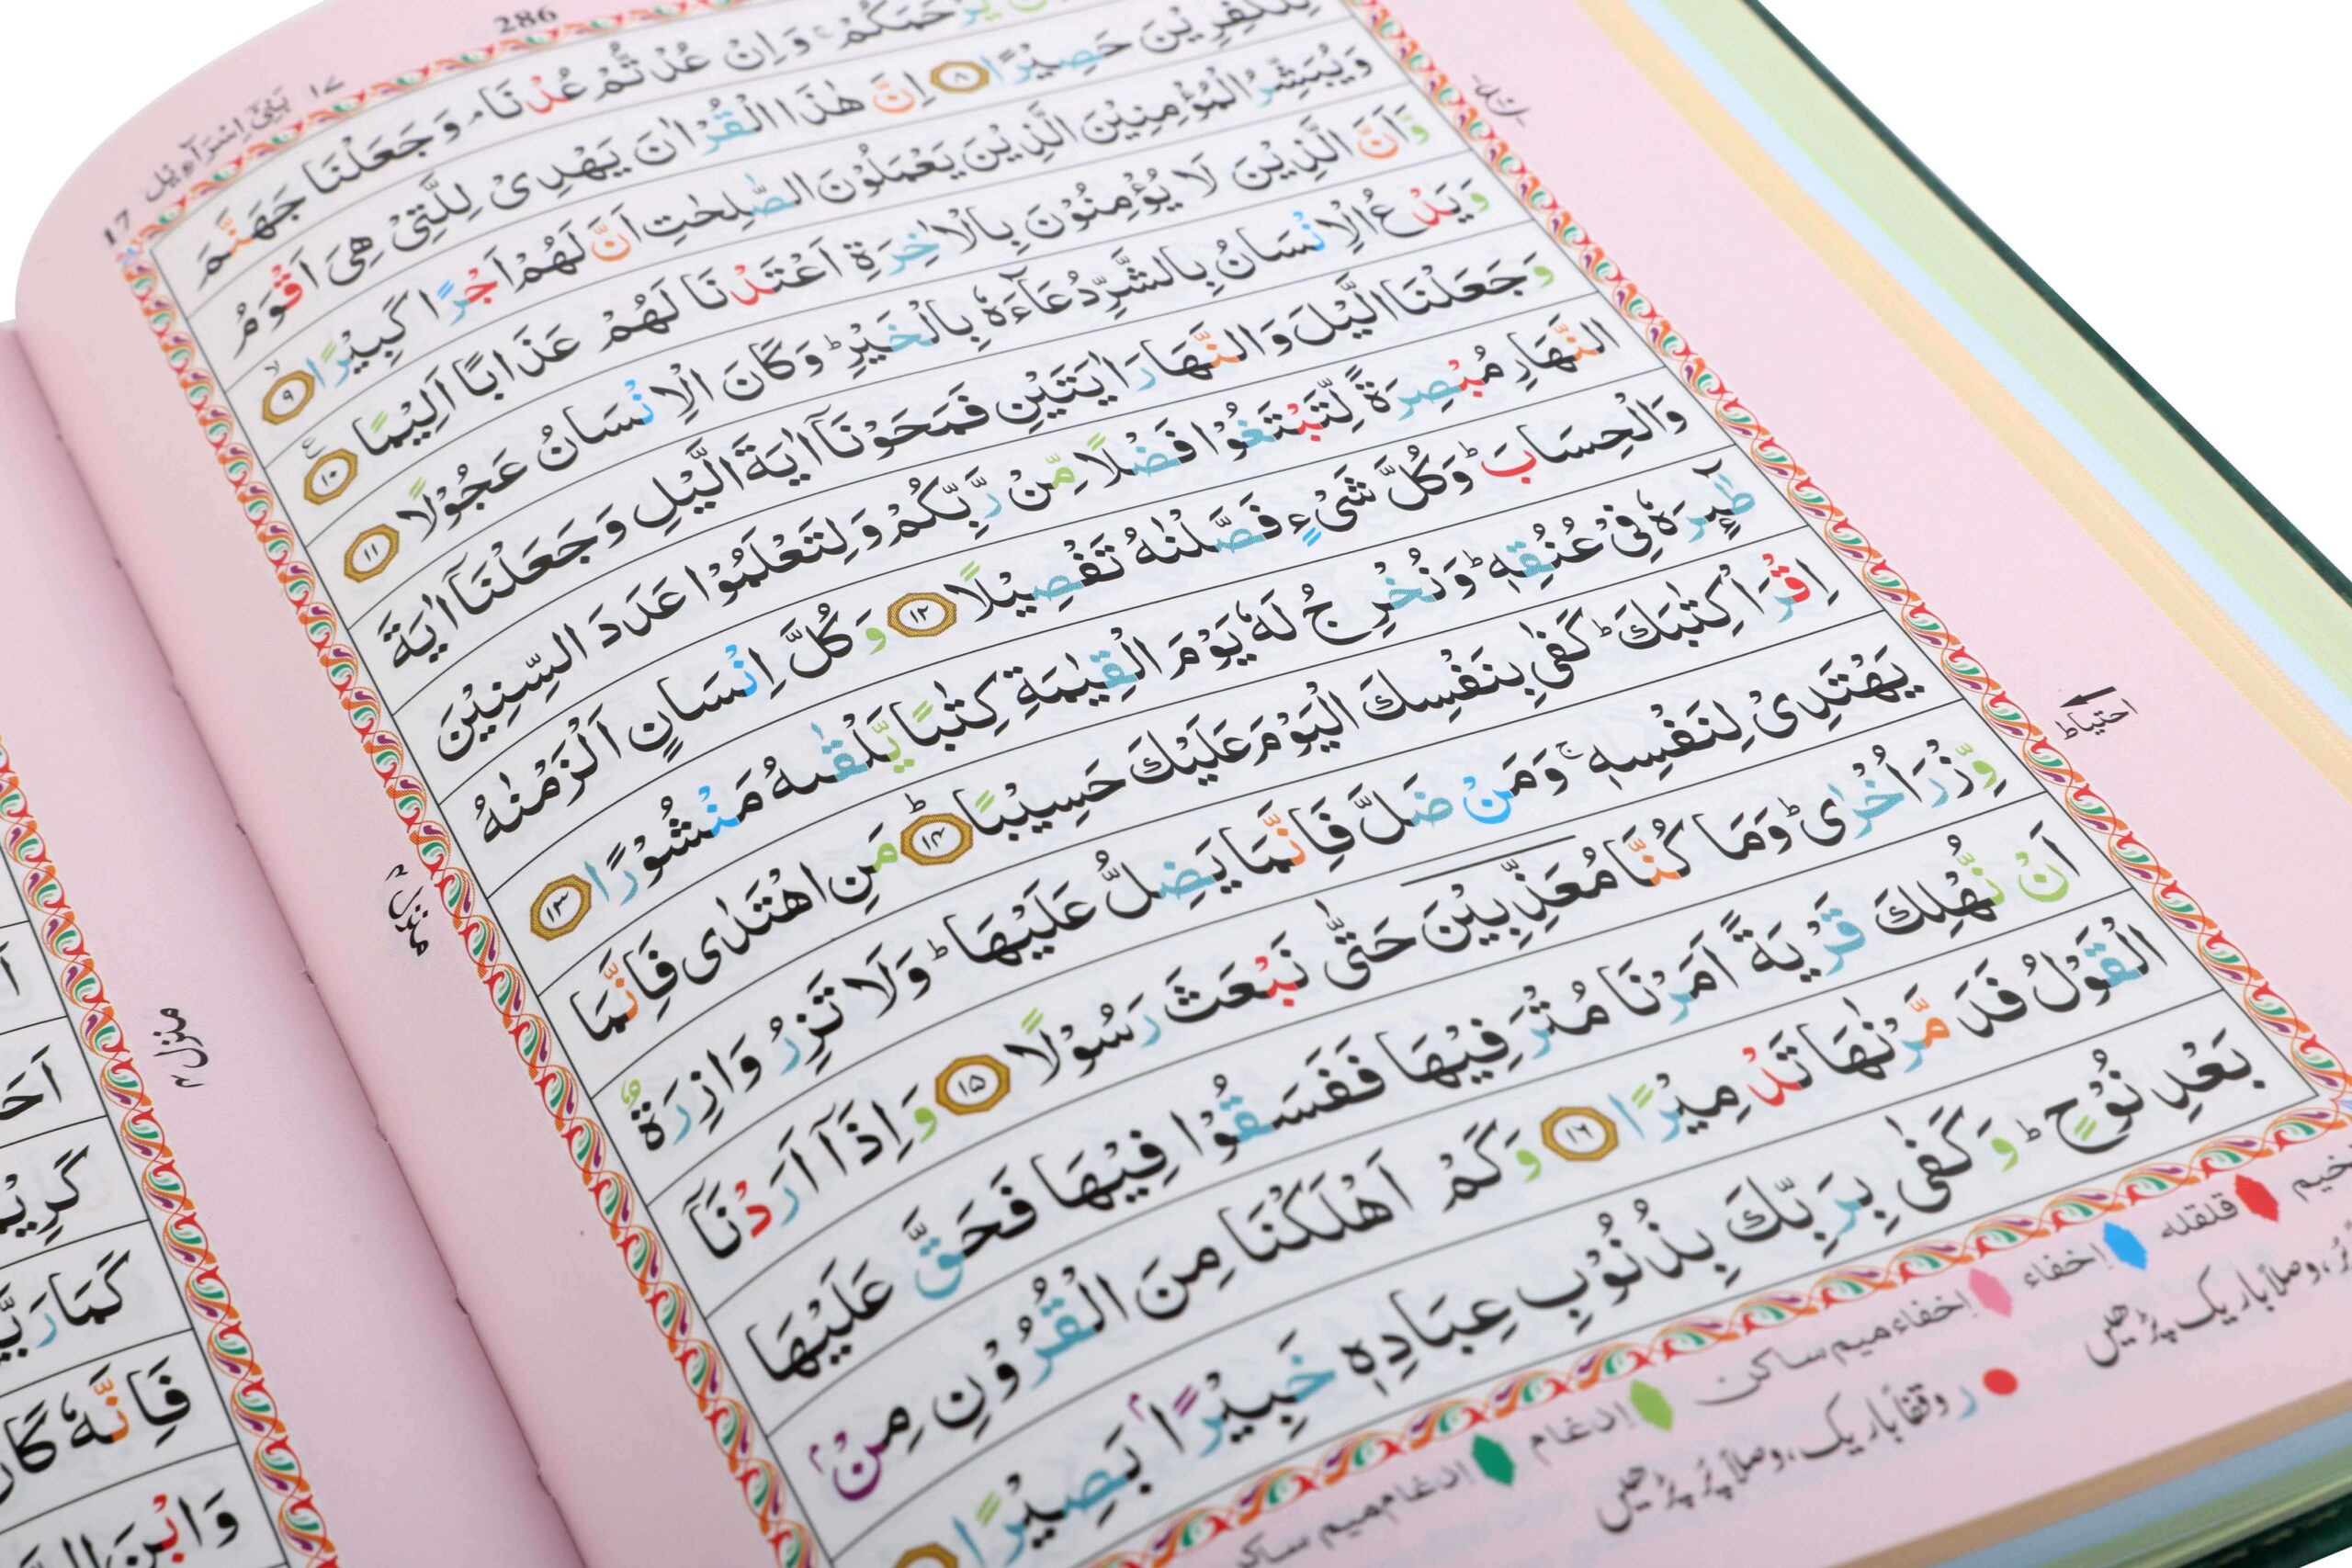 286
١٧ بَنِیْٓ اِسْرَآءِیْل 17
یَّرْحَمَكُمْ ۚ وَ اِنْ عُدْتُّمْ عُدْنَا ۘ وَ جَعَلْنَا جَهَنَّمَ
لِلْكٰفِرِیْنَ حَصِیْرًا ۝۸ اِنَّ هٰذَا الْقُرْاٰنَ یَهْدِیْ لِلَّتِیْ هِیَ اَقْوَمُ
وَ یُبَشِّرُ الْمُؤْمِنِیْنَ الَّذِیْنَ یَعْمَلُوْنَ الصّٰلِحٰتِ اَنَّ لَهُمْ اَجْرًا كَبِیْرًا ۙ۝۹
وَّ اَنَّ الَّذِیْنَ لَا یُؤْمِنُوْنَ بِالْاٰخِرَةِ اَعْتَدْنَا لَهُمْ عَذَابًا اَلِیْمًا ۝۱۰ ع
وَ یَدْعُ الْاِنْسَانُ بِالشَّرِّ دُعَآءَهٗ بِالْخَیْرِ ؕ وَ كَانَ الْاِنْسَانُ عَجُوْلًا ۝۱۱
وَ جَعَلْنَا الَّیْلَ وَ النَّهَارَ اٰیَتَیْنِ فَمَحَوْنَاۤ اٰیَةَ الَّیْلِ وَ جَعَلْنَاۤ اٰیَةَ
النَّهَارِ مُبْصِرَةً لِّتَبْتَغُوْا فَضْلًا مِّنْ رَّبِّكُمْ وَ لِتَعْلَمُوْا عَدَدَ السِّنِیْنَ
وَ الْحِسَابَ ؕ وَ كُلَّ شَیْءٍ فَصَّلْنٰهُ تَفْصِیْلًا ۝۱۲ وَ كُلَّ اِنْسَانٍ اَلْزَمْنٰهُ
طٰٓىِٕرَهٗ فِیْ عُنُقِهٖ ؕ وَ نُخْرِجُ لَهٗ یَوْمَ الْقِیٰمَةِ كِتٰبًا یَّلْقٰىهُ مَنْشُوْرًا ۝۱۳
اِقْرَاْ كِتٰبَكَ ؕ كَفٰی بِنَفْسِكَ الْیَوْمَ عَلَیْكَ حَسِیْبًا ؕ۝۱۴ مَنِ اهْتَدٰی فَاِنَّمَا
یَهْتَدِیْ لِنَفْسِهٖ ۚ وَ مَنْ ضَلَّ فَاِنَّمَا یَضِلُّ عَلَیْهَا ؕ وَ لَا تَزِرُ وَازِرَةٌ
وِّزْرَ اُخْرٰی ؕ وَ مَا كُنَّا مُعَذِّبِیْنَ حَتّٰی نَبْعَثَ رَسُوْلًا ۝۱۵ وَ اِذَاۤ اَرَدْنَاۤ
اَنْ نُّهْلِكَ قَرْیَةً اَمَرْنَا مُتْرَفِیْهَا فَفَسَقُوْا فِیْهَا فَحَقَّ عَلَیْهَا
الْقَوْلُ فَدَمَّرْنٰهَا تَدْمِیْرًا ۝۱۶ وَ كَمْ اَهْلَكْنَا مِنَ الْقُرُوْنِ مِنْۢ
بَعْدِ نُوْحٍ ؕ وَ كَفٰی بِرَبِّكَ بِذُنُوْبِ عِبَادِهٖ خَبِیْرًۢا بَصِیْرًا
احتیاط
منزل ۴
قلقله اِخفاء اِخفاء میم ساكن اِدغام اِدغام میم ساكن
وصلاً باریک پڑھیں ر وقفاً باریک، وصلاً پُر پڑھیں
منزل ۴
كَمَا رَبَّ
فَاِنَّهٗ كَانَ
وَ ابْنَ